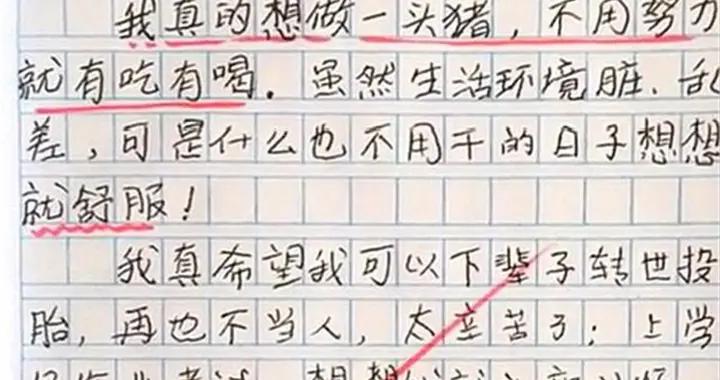 我真的想做一头猪，不用努力
就有吃有喝。虽然生活环境脏、乱
差，可是什么也不用干的日子想想
就舒服！
我真希望我可以下辈子转世投
胎，再也不当人，太辛苦了；上学
想想